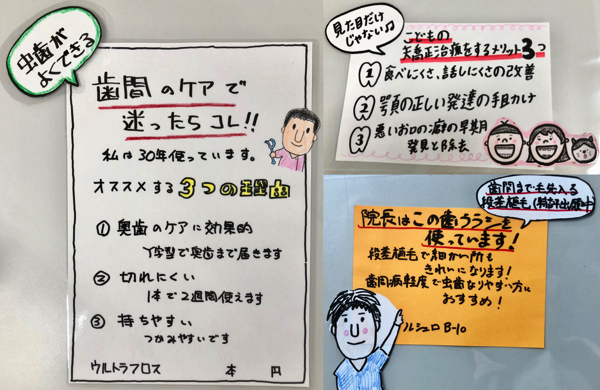 虫歯が
よくできる
歯間のケアで
迷ったらコレ!!
私は30年使っています。
オススメする3つの理由
① 奥歯のケアに効果的
Y字型で奥歯まで届きます
② 切れにくい
1本で2週間使えます
③ 持ちやすい
つかみやすいです
ウルトラフロス 本 円
見た目だけ
じゃない♫
こどもの
矢喬正治療をするメリット3つ
① 食べにくさ、話しにくさの改善
② 顎の正しい発達の手助け
③ 悪いお口の癖の早期
発見と除去
歯間まで毛先入る
段差植毛(特許出願中
院長はこの歯ブラシを
使っています!
段差植毛で細かい所も
きれいになります!
歯周病軽度で虫歯なりやすい方に
おすすめ!
ルシェロ B-10